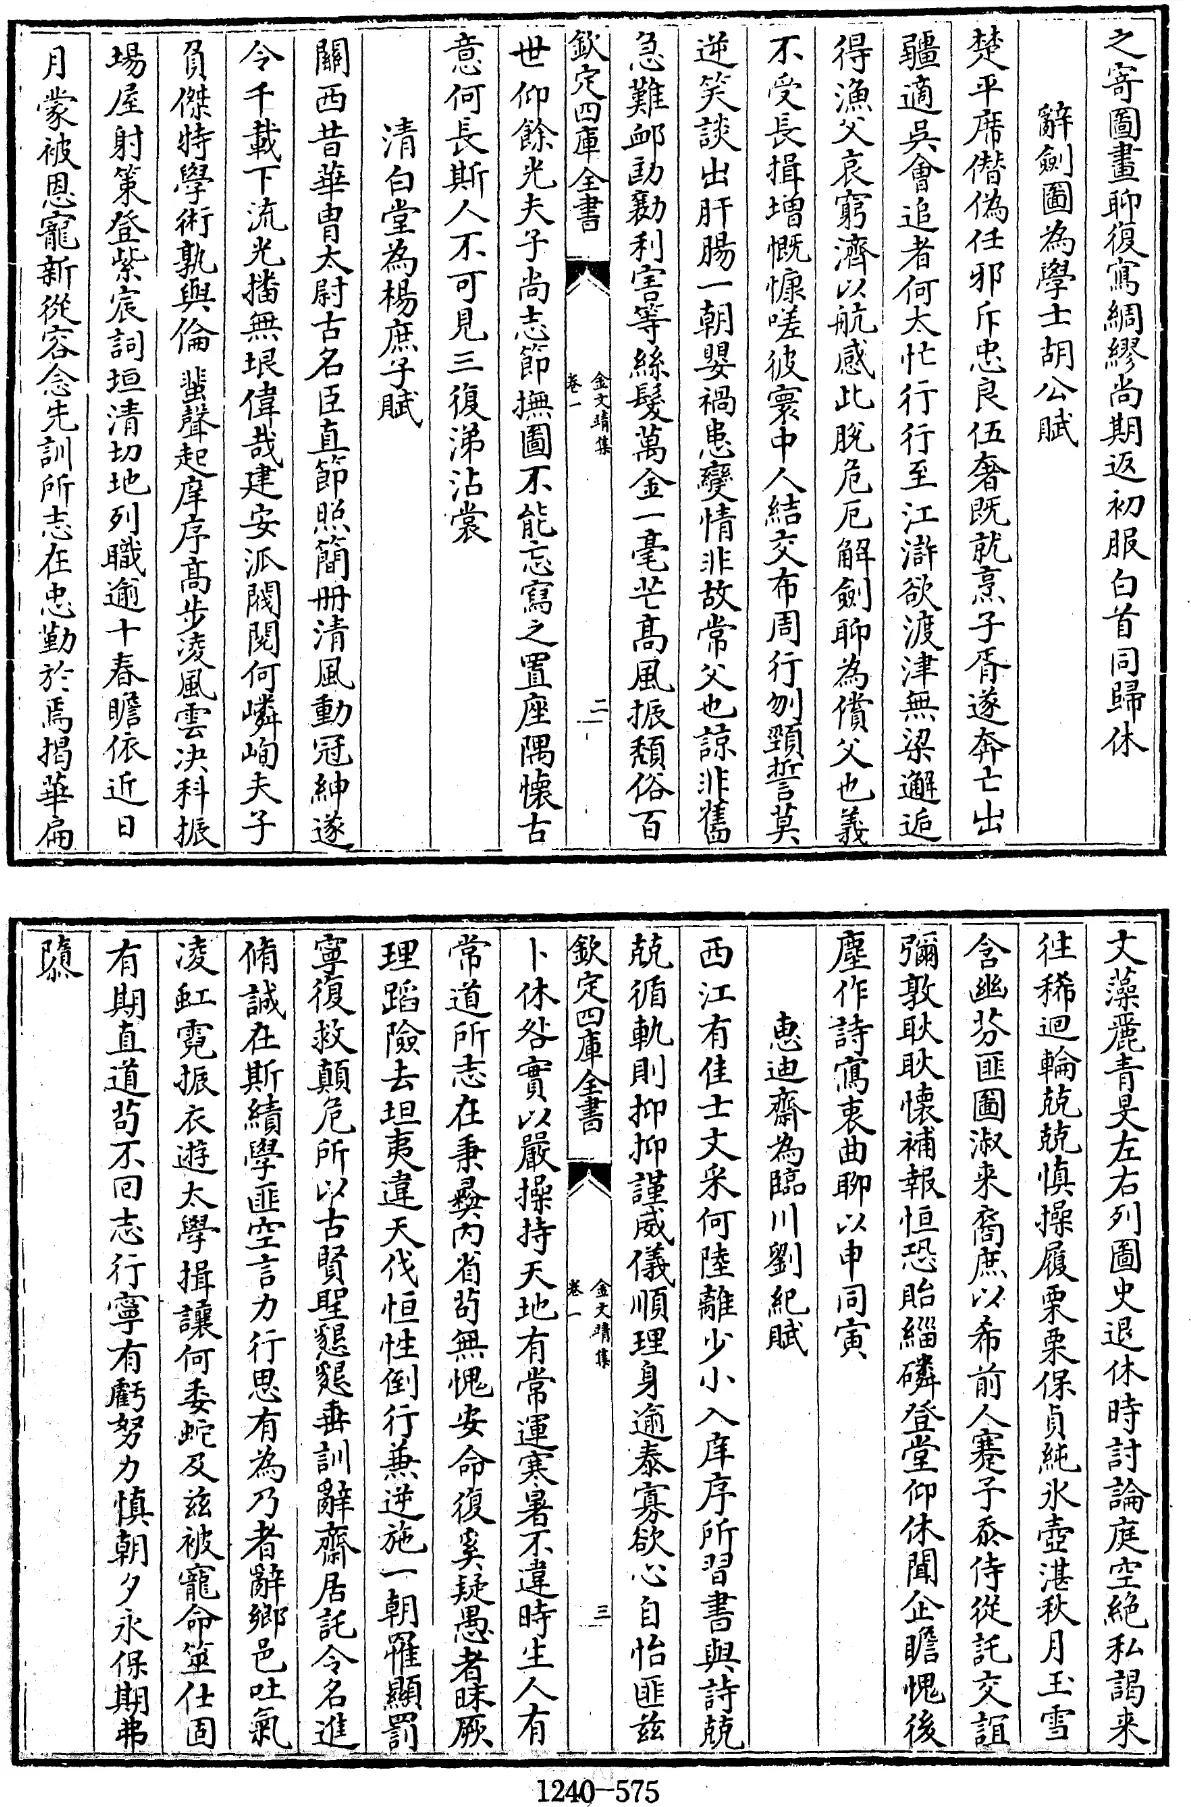 之寄圖畫聊復寫綢繆尚期返初服白首同歸休
辭劍圖為學士胡公賦
楚平席僭偽任邪斥忠良伍奢既就烹子胥遂奔亡出
疆適吳會追者何太忙行行至江滸欲渡津無梁邂逅
得漁父哀窮濟以航感此脫危厄解劍聊為償父也義
不受長揖增慨慷嗟彼寰中人結交布周行刎頸誓莫
逆笑談出肝腸一朝嬰禍患變情非故常父也諒非舊
急難卹劻勷利害等絲髮萬金一毫芒高風振頹俗百
欽定四庫全書
金文靖集
卷一
二
世仰餘光夫子尚志節撫圖不能忘寫之置座隅懷古
意何長斯人不可見三復涕沾裳
清白堂為楊庶子賦
關西昔華胄太尉古名臣直節照簡冊清風動冠紳遂
令千載下流光播無垠偉哉建安派閥閱何嶙峋夫子
負傑特學術孰與倫蜚聲起庠序高步凌風雲決科振
場屋射策登紫宸詞垣清切地列職逾十春瞻依近日
月蒙被恩寵新從容念先訓所志在忠勤於焉揭華扁
文藻麗青旻左右列圖史退休時討論庭空絶私謁来
徃稀迴輪兢兢慎操履栗栗保貞純氷壺湛秋月玉雪
含幽芬匪圖淑来裔庶以希前人蹇予忝侍從託交誼
彌敦耿耿懐補報恒恐貽緇磷登堂仰休聞企瞻愧後
塵作詩寫衷曲聊以申同寅
惠迪齋為臨川劉紀賦
西江有佳士文采何陸離少小入庠序所習書與詩兢
兢循軌則抑抑謹威儀順理身逾泰寡欲心自怡匪兹
欽定四庫全書
金文靖集
卷一
三
卜休咎實以嚴操持天地有常運寒暑不違時生人有
常道所志在秉彞內省苟無愧安命復奚疑愚者昧厥
理蹈險去坦夷違天伐恒性倒行兼逆施一朝罹顯罰
寧復救顛危所以古賢聖懇懇垂訓辭齋居託令名進
脩誠在斯績學匪空言力行思有為乃者辭鄉邑吐氣
凌虹霓振衣遊太學揖讓何委蛇及兹被寵命筮仕固
有期直道苟不回志行寧有虧努力慎朝夕永保期弗
隳
1240-575